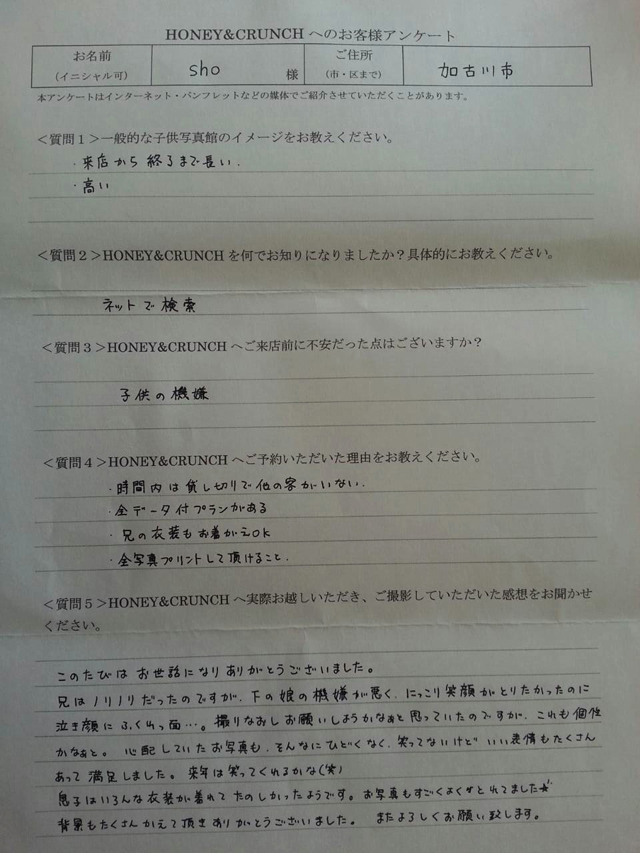 HONEY&CRUNCH へのお客様アンケート
お名前
(イニシャル可)
sho 様
ご住所
(市・区まで)
加古川市
本アンケートはインターネット・パンフレットなどの媒体でご紹介させていただくことがあります。
＜質問１＞一般的な子供写真館のイメージをお教えください。
・来店から終るまで長い.
・高い
＜質問２＞HONEY&CRUNCH を何でお知りになりましたか？具体的にお教えください。
ネットで検索
＜質問３＞HONEY&CRUNCH へご来店前に不安だった点はございますか？
子供の機嫌
＜質問４＞HONEY&CRUNCH へご予約いただいた理由をお教えください。
・時間内は貸し切りで他の客がいない.
・全データ付プランがある
・兄の衣装もお着がえOK
・全写真プリントして頂けること.
＜質問５＞HONEY&CRUNCH へ実際お越しいただき、ご撮影していただいた感想をお聞かせ
ください。
このたびはお世話になりありがとうございました。
兄はノリノリだったのですが、下の娘の機嫌が悪く、にっこり笑顔がとりたかったのに
泣き顔にふくれっ面…。撮りなおしお願いしようかなぁと思っていたのですが、これも個性
かなぁと。心配していたお写真も、そんなにひどくなく、笑ってないけどいい表情もたくさん
あって満足しました。来年は笑ってくれるかな(笑)
息子はいろんな衣装が着れてたのしかったようです。お写真もすごくよくとれてました☆
背景もたくさんかえて頂きありがとうございました。またよろしくお願い致します。